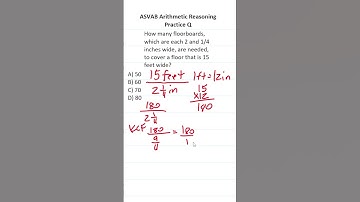 ASVAB Arithmetic Reasoning
Practice Q
How many floorboards,
which are each 2 and 1/4
inches wide, are needed,
to cover a floor that is 15
feet wide?
A) 50
B) 60
C) 70
D) 80
15 feet
2 1/4 in
1ft = 12in
15
x12
180
180
2 1/4
KCF 180/(9/4) = 180/1